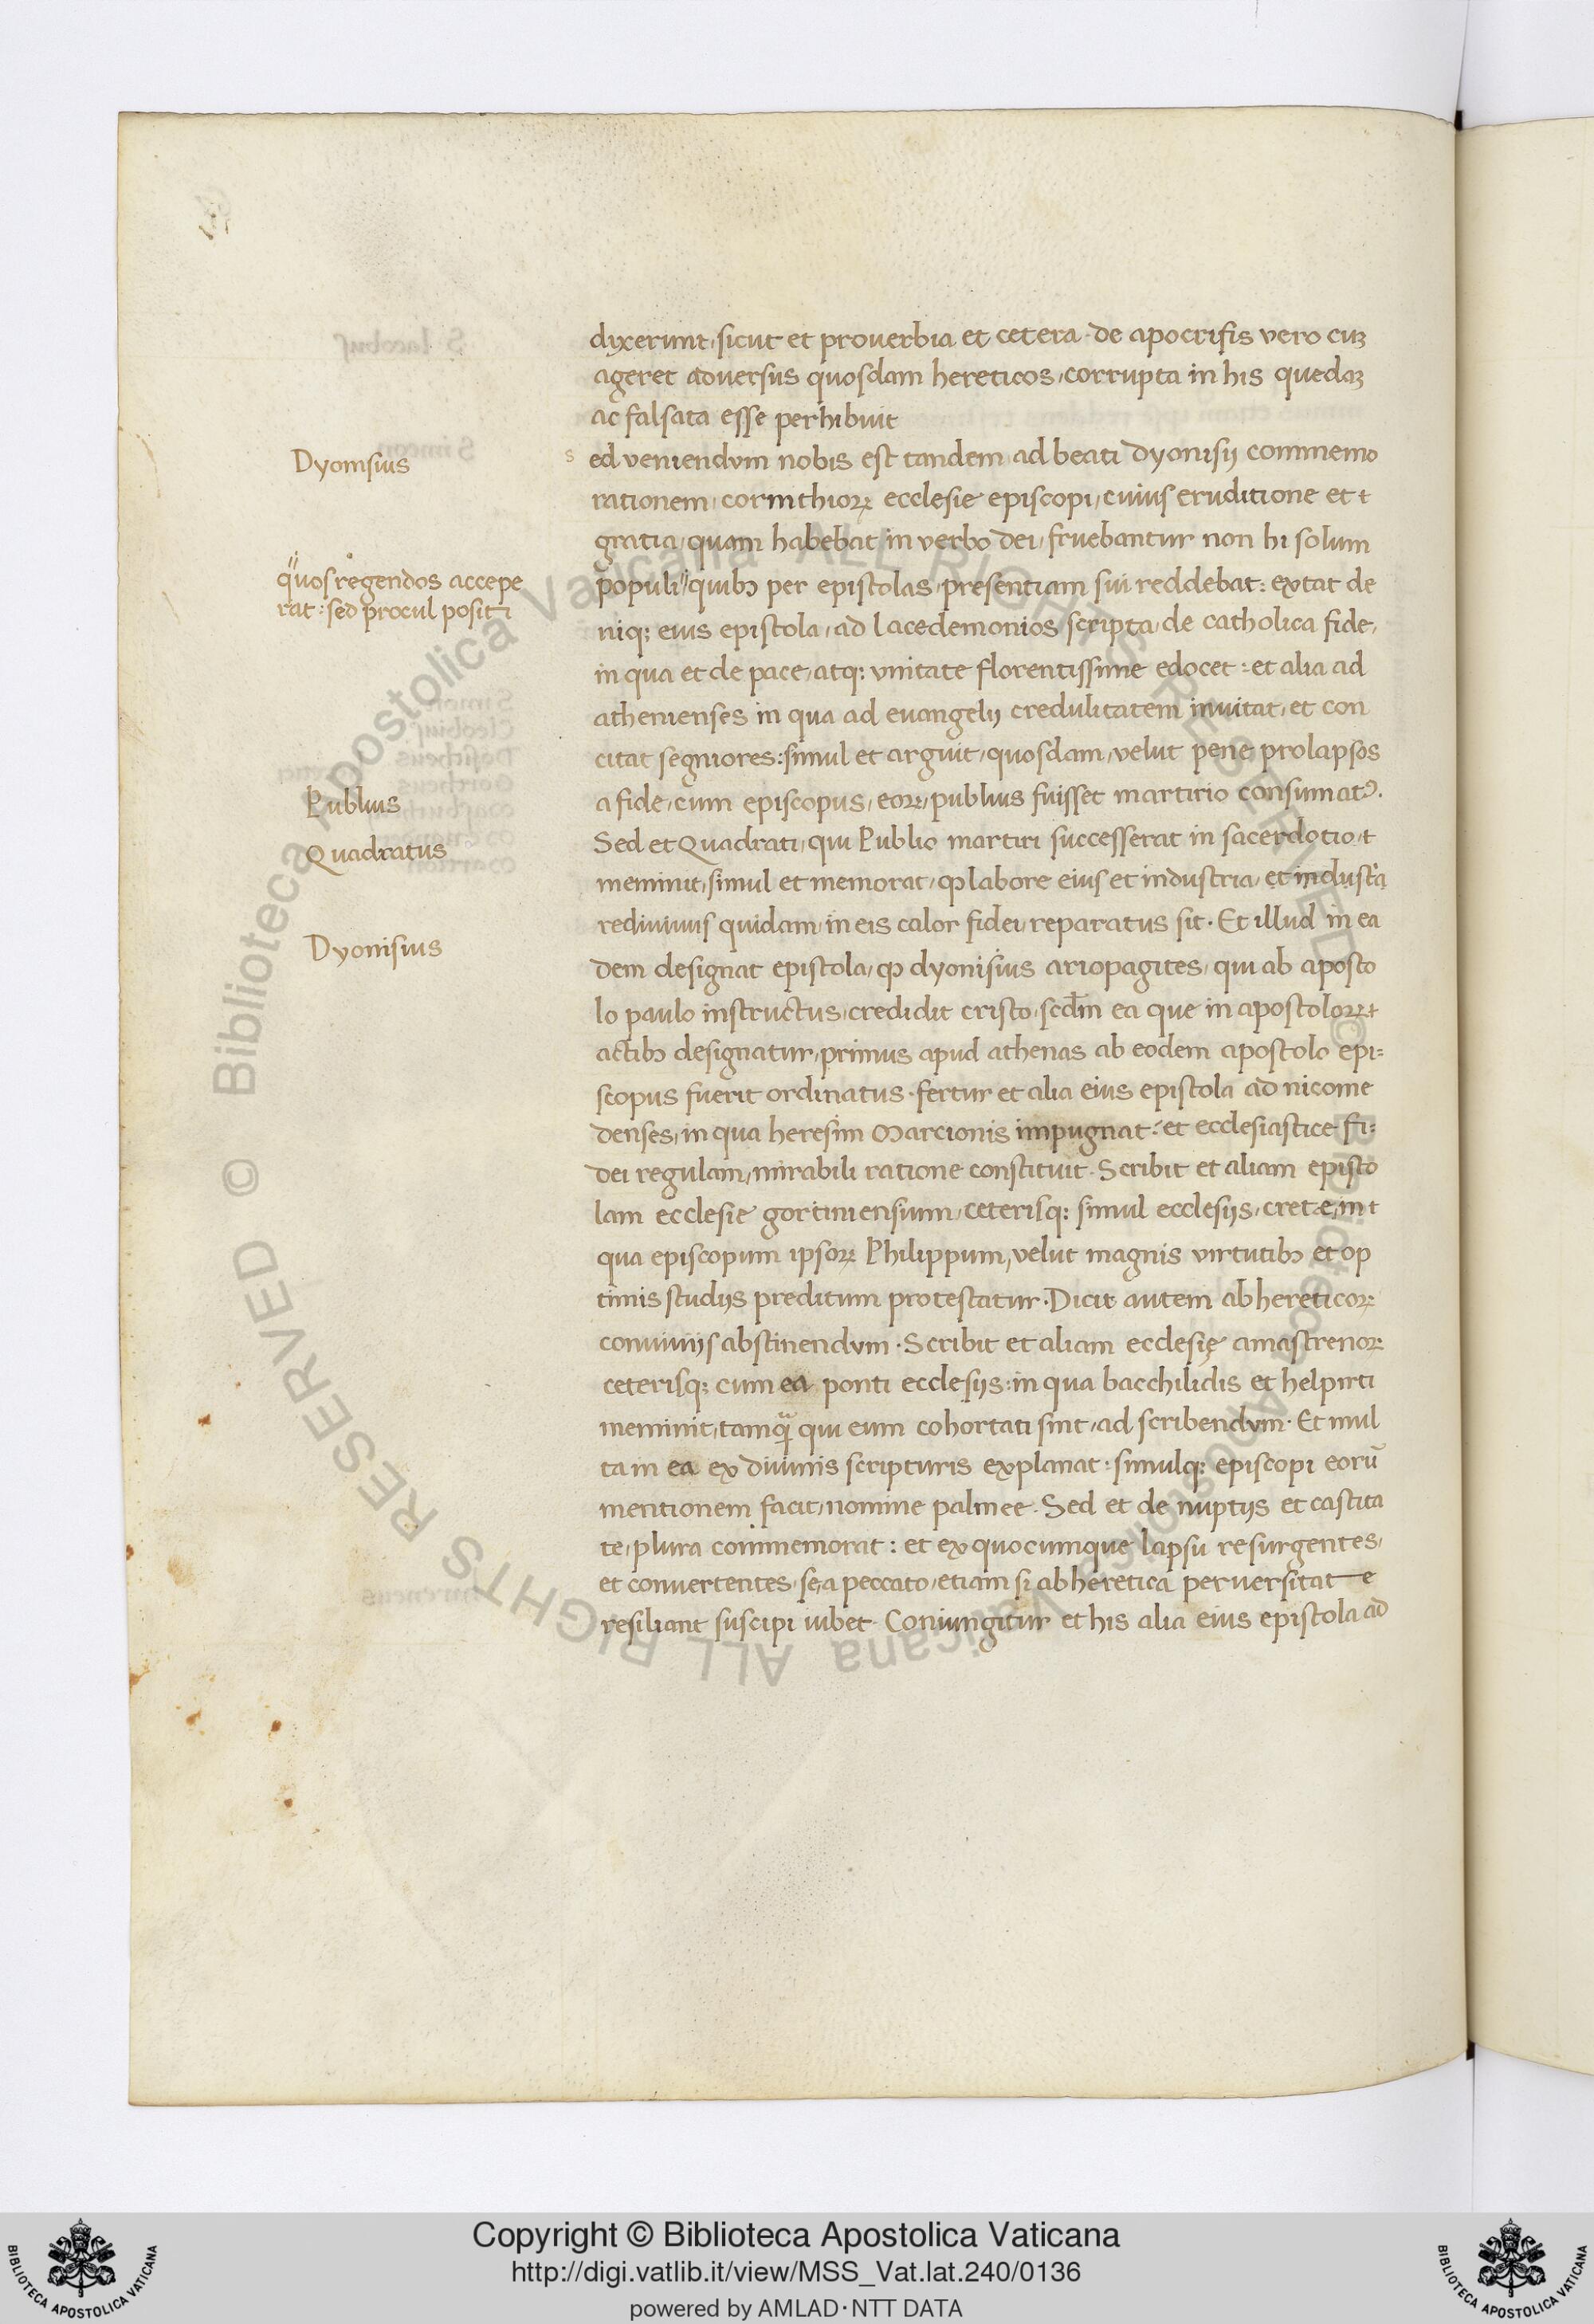 dixerunt, sicut et proverbia et cetera. de apocrifis vero cuʒ
ageret adversus quosdam hereticos, corrupta in his quedaʒ
ac falsata esse perhibuit
Dyonisius
s ed veniendum nobis est tandem ad beati dyonisij commemo
rationem, corinthioꝝ ecclesie episcopi, cuius eruditione et t
gratia, quam habebat in verbo dei, fruebantur non hi solum
quos regendos accepe
rat : sed procul positi
populi // quibꝫ per epistolas, presentiam sui reddebat : extat de
niqꝫ eius epistola, ad lacedemonios scripta, de catholica fide,
in qua et de pace, atqꝫ unitate florentissime edocet : et alia ad
athenienses in qua ad euangelij credulitatem inuitat, et con
citat segniores : simul et arguit, quosdam, velut pene prolapsos
Publius
a fide, cum episcopus, eoꝝ, publius fuisset martirio consumatꝰ.
Quadratus
Sed et Quadrati, qui Publio martiri successerat in sacerdotio, t
meminit, simul et memorat, ꝙ labore eius et industria, et industa
rediuiuus quidam, in eis calor fidei, reparatus sit. Et illud in ea
Dyonisius
dem designat epistola, ꝙ dyonisius ariopagites, qui ab aposto
lo paulo instructus, credidit cristo, scdm̄ ea que in apostoloꝝ t
actibꝫ designatur, primus apud athenas ab eodem apostolo epi=
scopus fuerit ordinatus. fertur et alia eius epistola ad nicome
denses, in qua heresim Marcionis impugnat : et ecclesiastice fi=
dei regulam, mirabili ratione constituit. Scribit et aliam episto
lam ecclesie gortiniensium, ceterisqꝫ simul ecclesijs, crete, in t
qua episcopum ipsoꝝ Philippum, velut magnis virtutibꝫ et op
timis studijs preditum protestatur. Dicit autem ab hereticoꝝ
conuiuijs abstinendum. Scribit et aliam ecclesię amastrenoꝝ
ceterisqꝫ cum ea ponti ecclesijs : in qua bacchilidis et helpirti
meminit, tamqᷓ qui eum cohortati sint, ad scribendum. Et mul
ta in ea ex diuinis scripturis explanat : simulqꝫ episcopi eorū
mentionem facit, nomine palmee. Sed et de nuptijs et castita
te, plura commemorat : et ex quocumque lapsu resurgentes,
et convertentes, se, a peccato, etiam si ab heretica perversitate
resiliant suscipi iubet. Coniungitur et his alia eius epistola ad
© Biblioteca Apostolica Vaticana ALL RIGHTS RESERVED
© Biblioteca Apostolica Vaticana ALL RIGHTS RESERVED
Copyright © Biblioteca Apostolica Vaticana
http://digi.vatlib.it/view/MSS_Vat.lat.240/0136
powered by AMLAD·NTT DATA
BIBLIOTECA APOSTOLICA VATICANA
BIBLIOTECA APOSTOLICA VATICANA